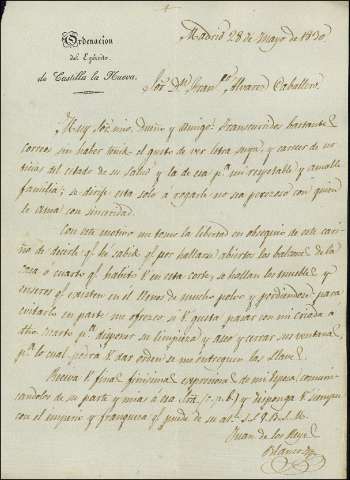 Ordenacion
del Egército
de Castilla la Nueva.
Madrid 28 de Mayo de 1830
Sor. Dn. Fran.co Alvarez Caballero.
Muy Sor. mio, Dueño y amigo: Transcurridos bastantes
correos sin haber tenido el gusto de ver letra suya, y carecer de no
ticias del estado de su salud y la de esa pa. mi respetable y amable
familia; se dirije esta solo á rogarle no sea perezoso con quien
le ama con sinceridad.
Con este motivo me tomo la libertad en obsequio de este cari
ño de decirle qe. hé sabido qe. por hallarse abiertos los balcones de la
casa ó cuarto qe. habitó V. en esta corte, se hallan los muebles y
enseres qe. existen en él llenos de mucho polvo y perdiendose; para
evitarlo en parte me ofrezco si V. gusta pasar con mi criada á
dho. cuarto pa. disponer su limpieza y aseo y cerrar sus ventanas,
pa. lo cual podrá V. dar orden se me entreguen las llaves.
Reciva V. finas expresiones de mi Esposa, comuni
candolas de su parte y mias á esa Sra. (c.p.b.) y disponga V. siempre
con el imperio y franqueza qe. puede de su
Juan de los Reyes
Blanco